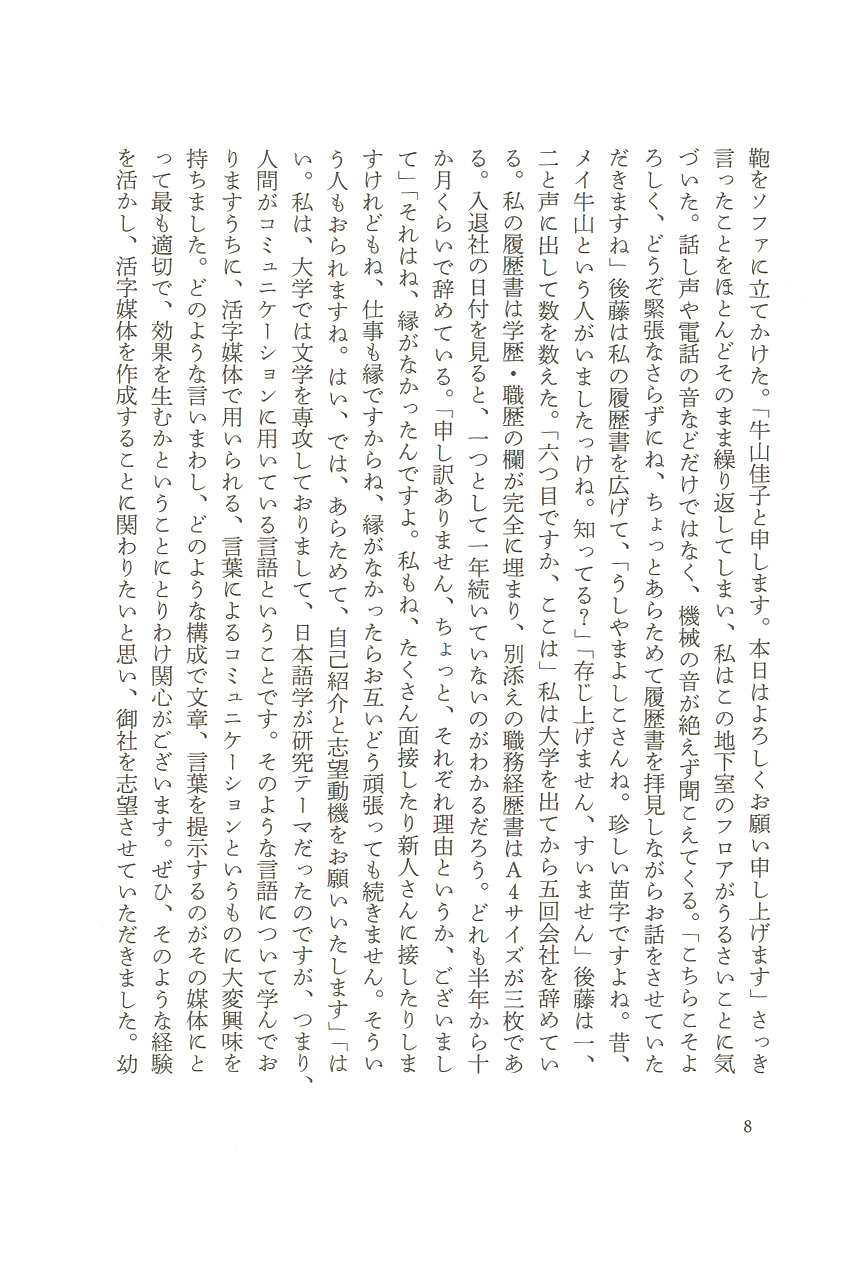 鞄をソファに立てかけた。「牛山佳子と申します。本日はよろしくお願い申し上げます」さっき
言ったことをほとんどそのまま繰り返してしまい、私はこの地下室のフロアがうるさいことに気
づいた。話し声や電話の音などだけではなく、機械の音が絶えず聞こえてくる。「こちらこそよ
ろしく、どうぞ緊張なさらずにね、ちょっとあらためて履歴書を拝見しながらお話をさせていた
だきますね」後藤は私の履歴書を広げて、「うしやまよしこさんね。珍しい苗字ですよね。昔、
メイ牛山という人がいましたっけね。知ってる？」「存じ上げません、すいません」後藤は一、
二と声に出して数を数えた。「六つ目ですか、ここは」私は大学を出てから五回会社を辞めてい
る。私の履歴書は学歴・職歴の欄が完全に埋まり、別添えの職務経歴書はＡ４サイズが三枚であ
る。入退社の日付を見ると、一つとして一年続いていないのがわかるだろう。どれも半年から十
か月くらいで辞めている。「申し訳ありません、ちょっと、それぞれ理由というか、ございまし
て」「それはね、縁がなかったんですよ。私もね、たくさん面接したり新人さんに接したりしま
すけれどもね、仕事も縁ですからね、縁がなかったらお互いどう頑張っても続きません。そうい
う人もおられますね。はい、では、あらためて、自己紹介と志望動機をお願いいたします」「は
い。私は、大学では文学を専攻しておりまして、日本語学が研究テーマだったのですが、つまり、
人間がコミュニケーションに用いている言語ということです。そのような言語について学んでお
りますうちに、活字媒体で用いられる、言葉によるコミュニケーションというものに大変興味を
持ちました。どのような言いまわし、どのような構成で文章、言葉を提示するのがその媒体にと
って最も適切で、効果を生むかということにとりわけ関心がございます。ぜひ、そのような経験
を活かし、活字媒体を作成することに関わりたいと思い、御社を志望させていただきました。幼
8